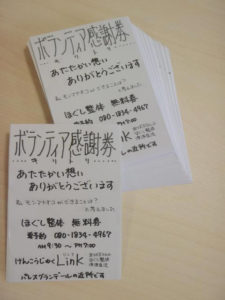 ボランティア感謝券
あたたかい想い
ありがとうございます
ほぐし整体 無料券
要予約 080-1834-4967
AM9:30 ~ PM7:00
けんこうじゅくLink
パレスグランデールの近所です
ボランティア感謝券
あたたかい想い
ありがとうございます
ほぐし整体 無料券
080-1834-4967
PM7:00
Link
の近所です